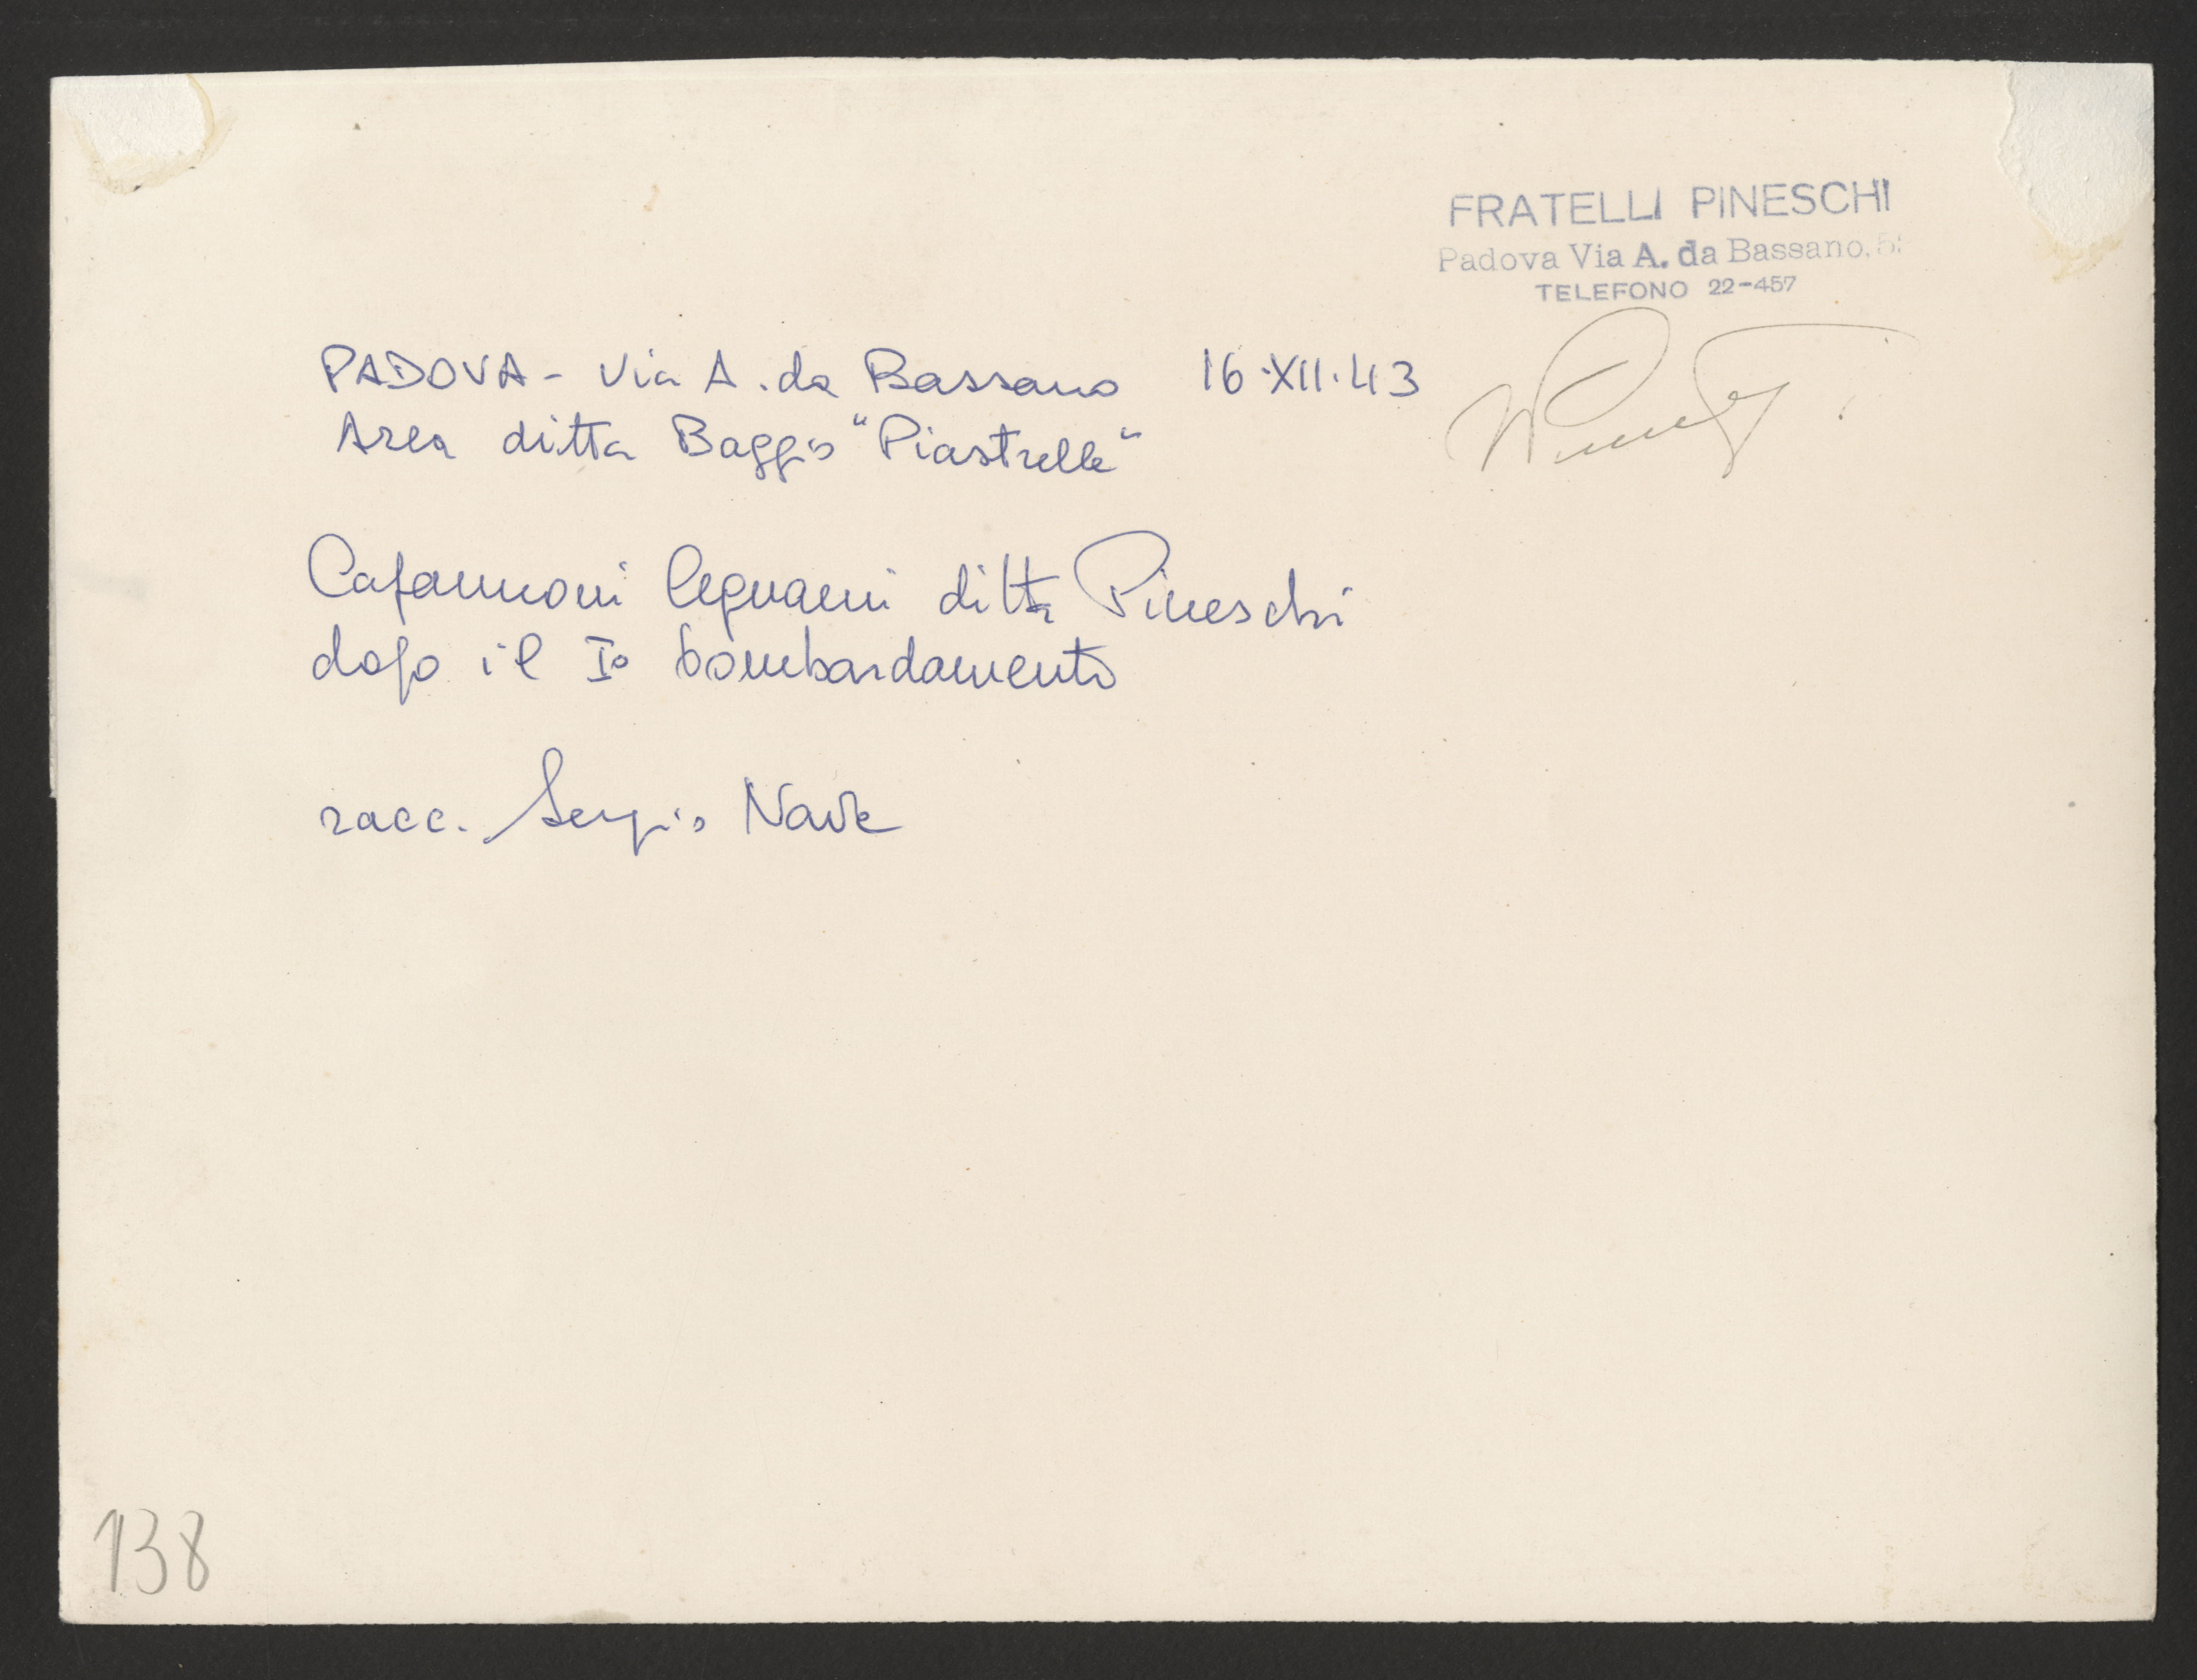 FRATELLI PINESCHI
Padova Via A. da Bassano,
TELEFONO 22-457
PADOVA - Via A. da Bassano 16·XII·43
Area ditta Baggio "Piastrelle"
Capannoni legnami ditta Pineschi
dopo il Iº bombardamento
racc. Sergio Nave
138